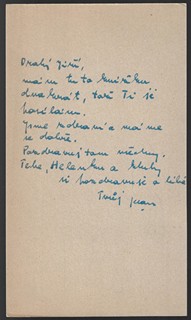 Drahý Jiří,
mám tu to knížku
dvakrát, tož Ti je
posílám.
Jsme zdraví a máme
se dobře.
Pozdravuj tam všechny.
Tebe, Helenku a kluky
si pozdravuje a líbá
Tvůj